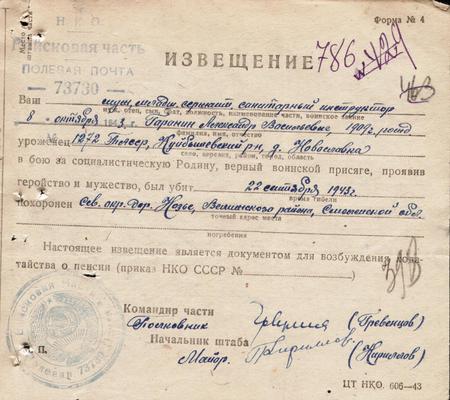 Место штампа
войсковой части
Форма № 4
Н К О
Войсковая часть
ПОЛЕВАЯ ПОЧТА
— 73730 —
ИЗВЕЩЕНИЕ
786
463
Ваш муж, младш. сержант, санитарный инструктор
муж, отец, сын, брат, должность, наименование части, воинское звание
8 октября 1943 г. Гаранин Александр Васильевич 1909г. рожд
фамилия, имя, отчество
№ 1272
уроженец Куйбышевский р-н, д. Новославка
село, деревня, район, город, область
в бою за социалистическую Родину, верный воинской присяге, проявив
геройство и мужество, был убит 22 сентября 1943г.
время гибели
похоронен Сев. окр. дер. Велижского района, Смоленской обл.
точный адрес места
погребения
Настоящее извещение является документом для возбуждения хода-
тайства о пенсии (приказ НКО СССР №
398
Командир части
Полковник (Гревенцов)
Начальник штаба
Майор (Кириллов)
М. П.
ЦТ НКО. 606—43